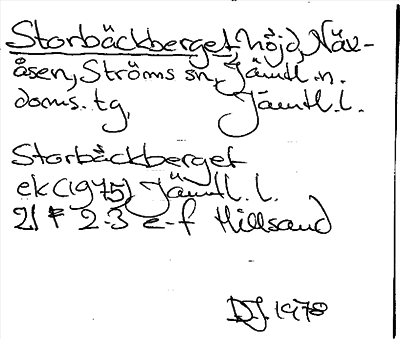 Storbäckberget, höjd, Näx-
åsen, Ströms sn, Jämtl. n.
doms. tg, Jämtl. l.
Storbäckberget
ek (1975) Jämtl. l.
21 F 2-3 e-f Hillsand
D.J. 1978